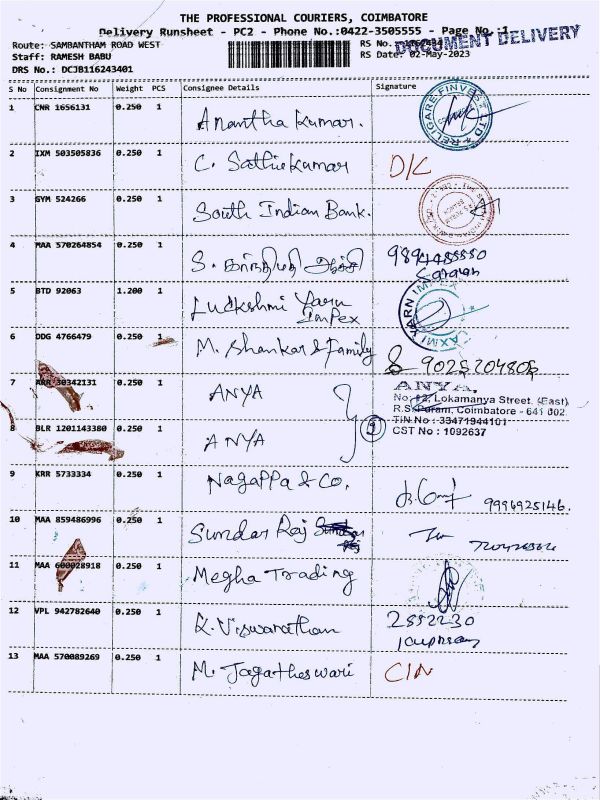 THE PROFESSIONAL COURIERS, COIMBATORE
Delivery Runsheet - PC2 - Phone No.:0422-3505555 - Page No.:1
Route: SAMBANTHAM ROAD WEST
RS No.
DOCUMENT DELIVERY
Staff: RAMESH BABU
RS Date: 02-May-2023
DRS No.: DCJB116243401
S No Consignment No Weight PCS Consignee Details Signature
1 CNR 1656131 0.250 1 Anantha Kumar.
RELIGARE FINVEST LTD
2 IXM 503505836 0.250 1 C. Sathiekumar D/C
3 GYM 524266 0.250 1 South Indian Bank.
4 MAA 570264854 0.250 1 S.
Saravan
5 BTD 92063 1.200 1 Luckshmi Yarn
Impex
YARN IMPEX
6 DDG 4766479 0.250 1 M. Shankar & Family
7 ARR 30342131 0.250 1 ANYA
ANYA,
No: 12, Lokamanya Street, (East)
R.S.Puram, Coimbatore - 641 002.
TIN No : 33471944101
CST No : 1092637
8 BLR 1201143380 0.250 1 ANYA
9
9 KRR 5733334 0.250 1 Nagappa & Co.
9994925146.
10 MAA 859486996 0.250 1 Sundar Raj
11 MAA 600028918 0.250 1 Megha Trading
12 VPL 942782640 0.250 1 K. Viswanathan 2552230
13 MAA 570089269 0.250 1 M. Jagatheswari C/N